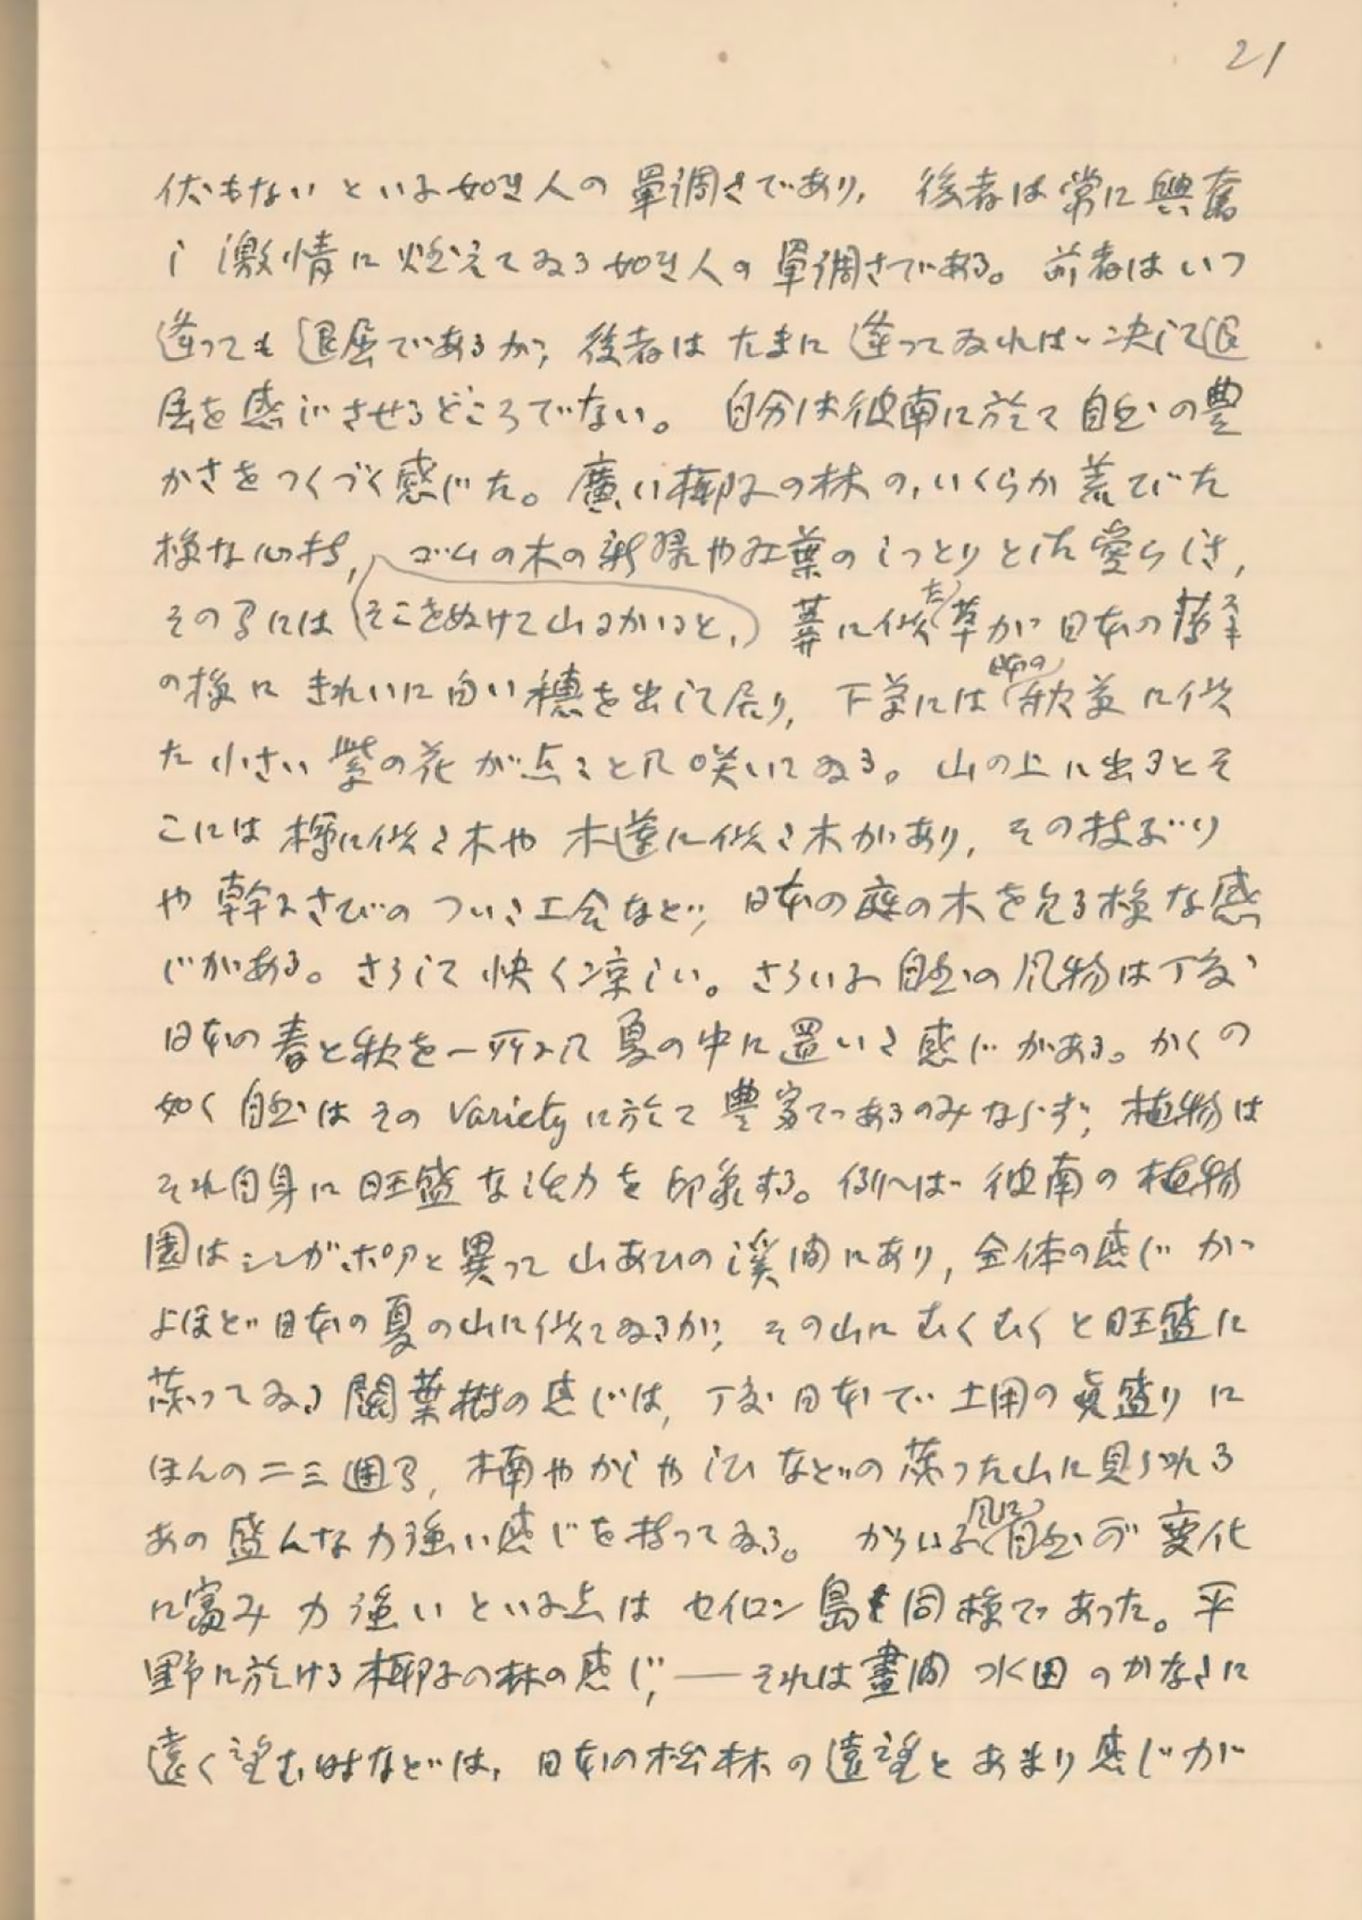 21
伏もないといふ如き人の單調さであり、後者は常に興奮
し激情に燃えてゐる如き人の單調さである。前者はいつ
逢っても退屈であるが、後者はたまに逢ってゐれば決して退
屈を感じさせるどころでない。自分は彼南に於て自然の豊
かさをつくづく感じた。廣い椰子の林の、いくらか荒びた
様な心持、ゴムの木の新緑や紅葉のしっとりとした愛らしさ、
その間には(そこをぬけて山にかゝると、)葊に似た草が日本の薄スヽキ
の様にきれいに白い穂を出して居り、下草には日本の欵苳に似
た小さい紫の花が点々として咲いてゐる。山の上に出るとそ
こには樫に似た木や木蓮に似た木があり、その枝ぶり
や幹にさびのついた工合など、日本の庭の木を見る様な感
じがある。さうして快く凉しい。さういふ自然の風物は丁度
日本の春と秋を一所にして夏の中に置いた感じがある。かくの
如く自然はその variety に於て豊富であるのみならず、植物は
それ自身に旺盛な活力を印象する。例へば彼南の植物
園はシンガポアと異って山あひの溪間にあり、全体の感じが
よほど日本の夏の山に似てゐるが、その山にむくむくと旺盛に
茂ってゐる闊葉樹の感じは、丁度日本で土用の眞盛りに
ほんの二三週間、楠やかしやしひなどの茂った山に見られる
あの盛んな力強い感じを持ってゐる。かういふ風に自然が変化
に富み力強いといふ点はセイロン島も同様であった。平
野に於ける椰子の林の感じ、――それは晝間水田のかなたに
遠く望む時などは、日本の松林の遠望とあまり感じが